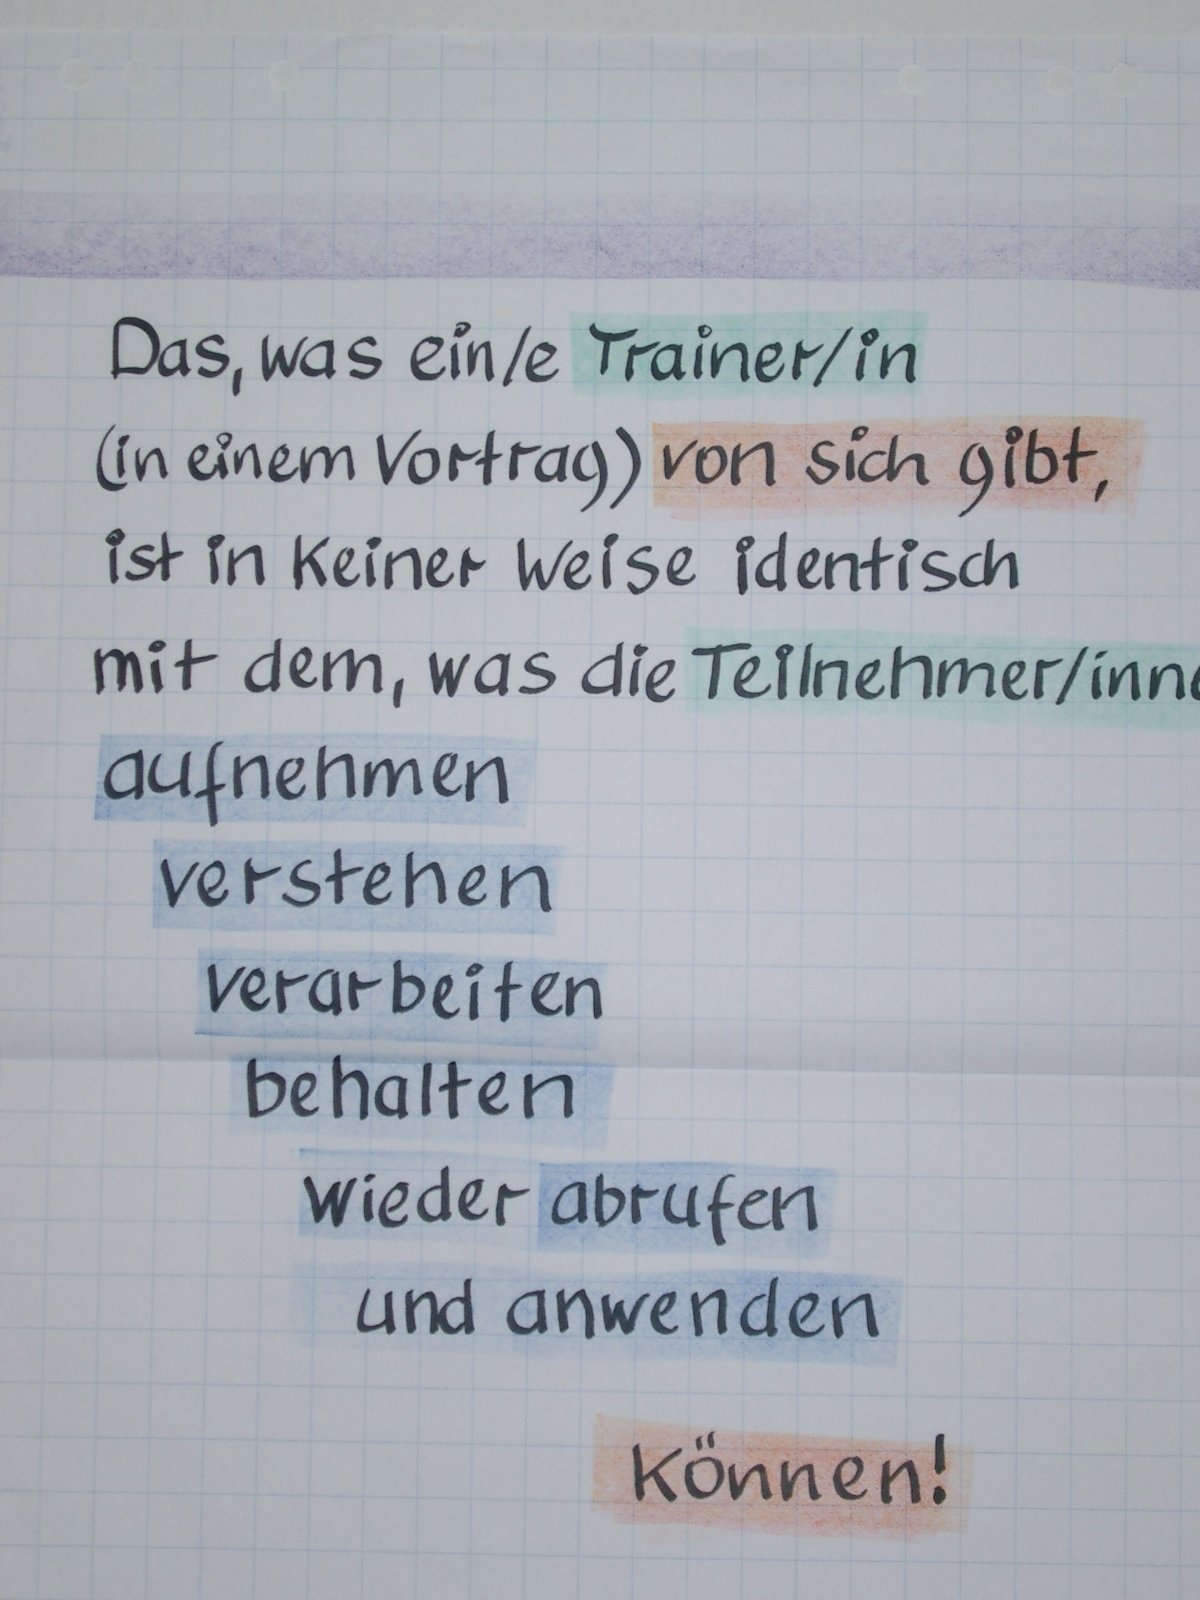 Das, was ein/e Trainer/in
(in einem Vortrag) von sich gibt,
ist in keiner Weise identisch
mit dem, was die Teilnehmer/inne
aufnehmen
verstehen
verarbeiten
behalten
wieder abrufen
und anwenden
können!